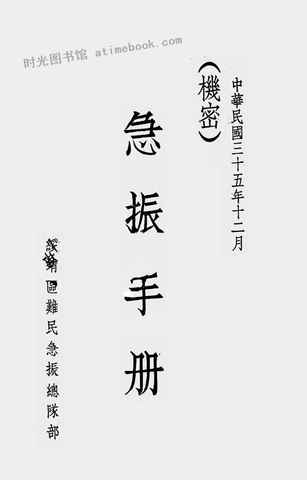 时光图书馆 atimebook.com
中華民國三十五年十二月
（機密）
急振手册
綏靖區難民急振總隊部